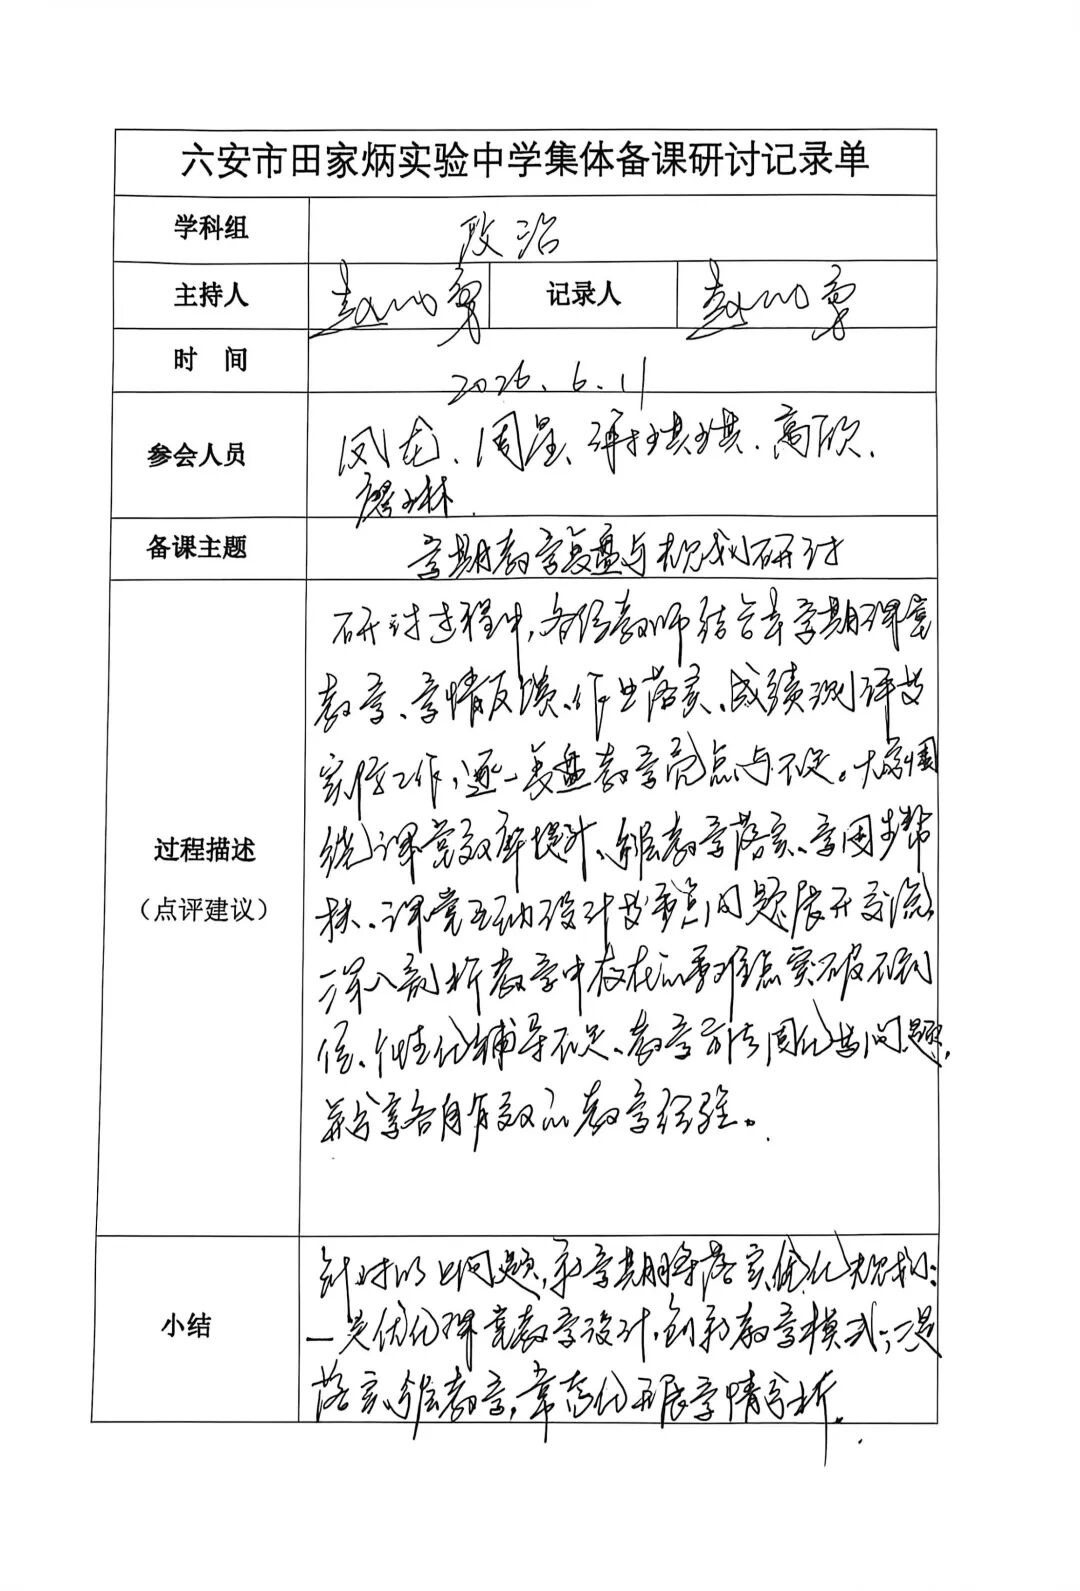 六安市田家炳实验中学集体备课研讨记录单
学科组 政治
主持人 记录人
时 间 2026.6.11
参会人员 凤龙、周星、琪琪、高欣、
琳
备课主题 学期教学复盘与规划研讨
研讨过程中,各位教师结合本学期课堂
教学、学情反馈、作业落实、成绩测评等
实际工作,逐一复盘教学亮点与不足。大家围
绕课堂效率提升、分层教学落实、学困生帮
扶、课堂互动设计等重点问题展开交流,
深入剖析教学中存在的重难点突破不到
位、个性化辅导不足、教学方法固化等问题,
并分享各自有效的教学经验。
过程描述
(点评建议)
针对以上问题,新学期将落实优化规划:
一是优化课堂教学设计,创新教学模式;二是
落实分层教学,常态化开展学情分析。
小结